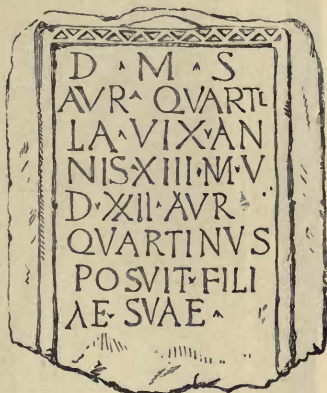 D · M · S
AVR · QVARTI
LA · VIX · AN
NIS · XIII · M · V
D · XXII · AVR
QVARTINVS
POSVIT · FILI
AE · SVAE ·